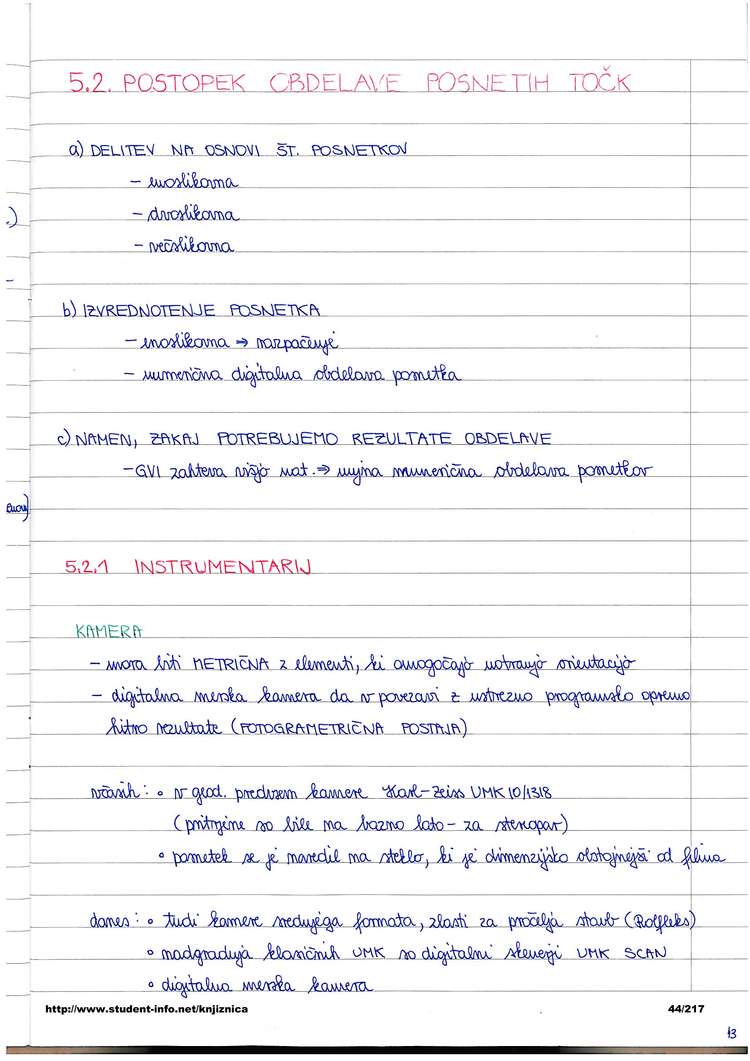 5.2. POSTOPEK OBDELAVE POSNETIH TOČK
a) DELITEV NA OSNOVI ŠT. POSNETKOV
- enoslikovna
- dvoslikovna
- večslikovna
b) IZVREDNOTENJE POSNETKA
- enoslikovna ⇒ razpačenje
- numerična digitalna obdelava posnetka
c) NAMEN, ZAKAJ POTREBUJEMO REZULTATE OBDELAVE
- GVI zahteva višjo nat. ⇒ nujna numerična obdelava posnetkov
5.2.1 INSTRUMENTARIJ
KAMERA
- mora biti METRIČNA z elementi, ki omogočajo notranjo orientacijo
- digitalna merska kamera da v povezavi z ustrezno programsko opremo
hitro rezultate (FOTOGRAMETRIČNA POSTAJA)
včasih: • v geod. predvsem kamere Karl-Zeiss UMK 10/1318
(pritrjene so bile na bazno lato - za stereopar)
• posnetek se je naredil na steklo, ki je dimenzijsko obstojnejši od filma
danes: • tudi kamere srednjega formata, zlasti za pročelja stavb (Rolfleks)
• nadgradnja klasičnih UMK so digitalni skenerji UMK SCAN
• digitalna merska kamera
http://www.student-info.net/knjiznica 44/217
13